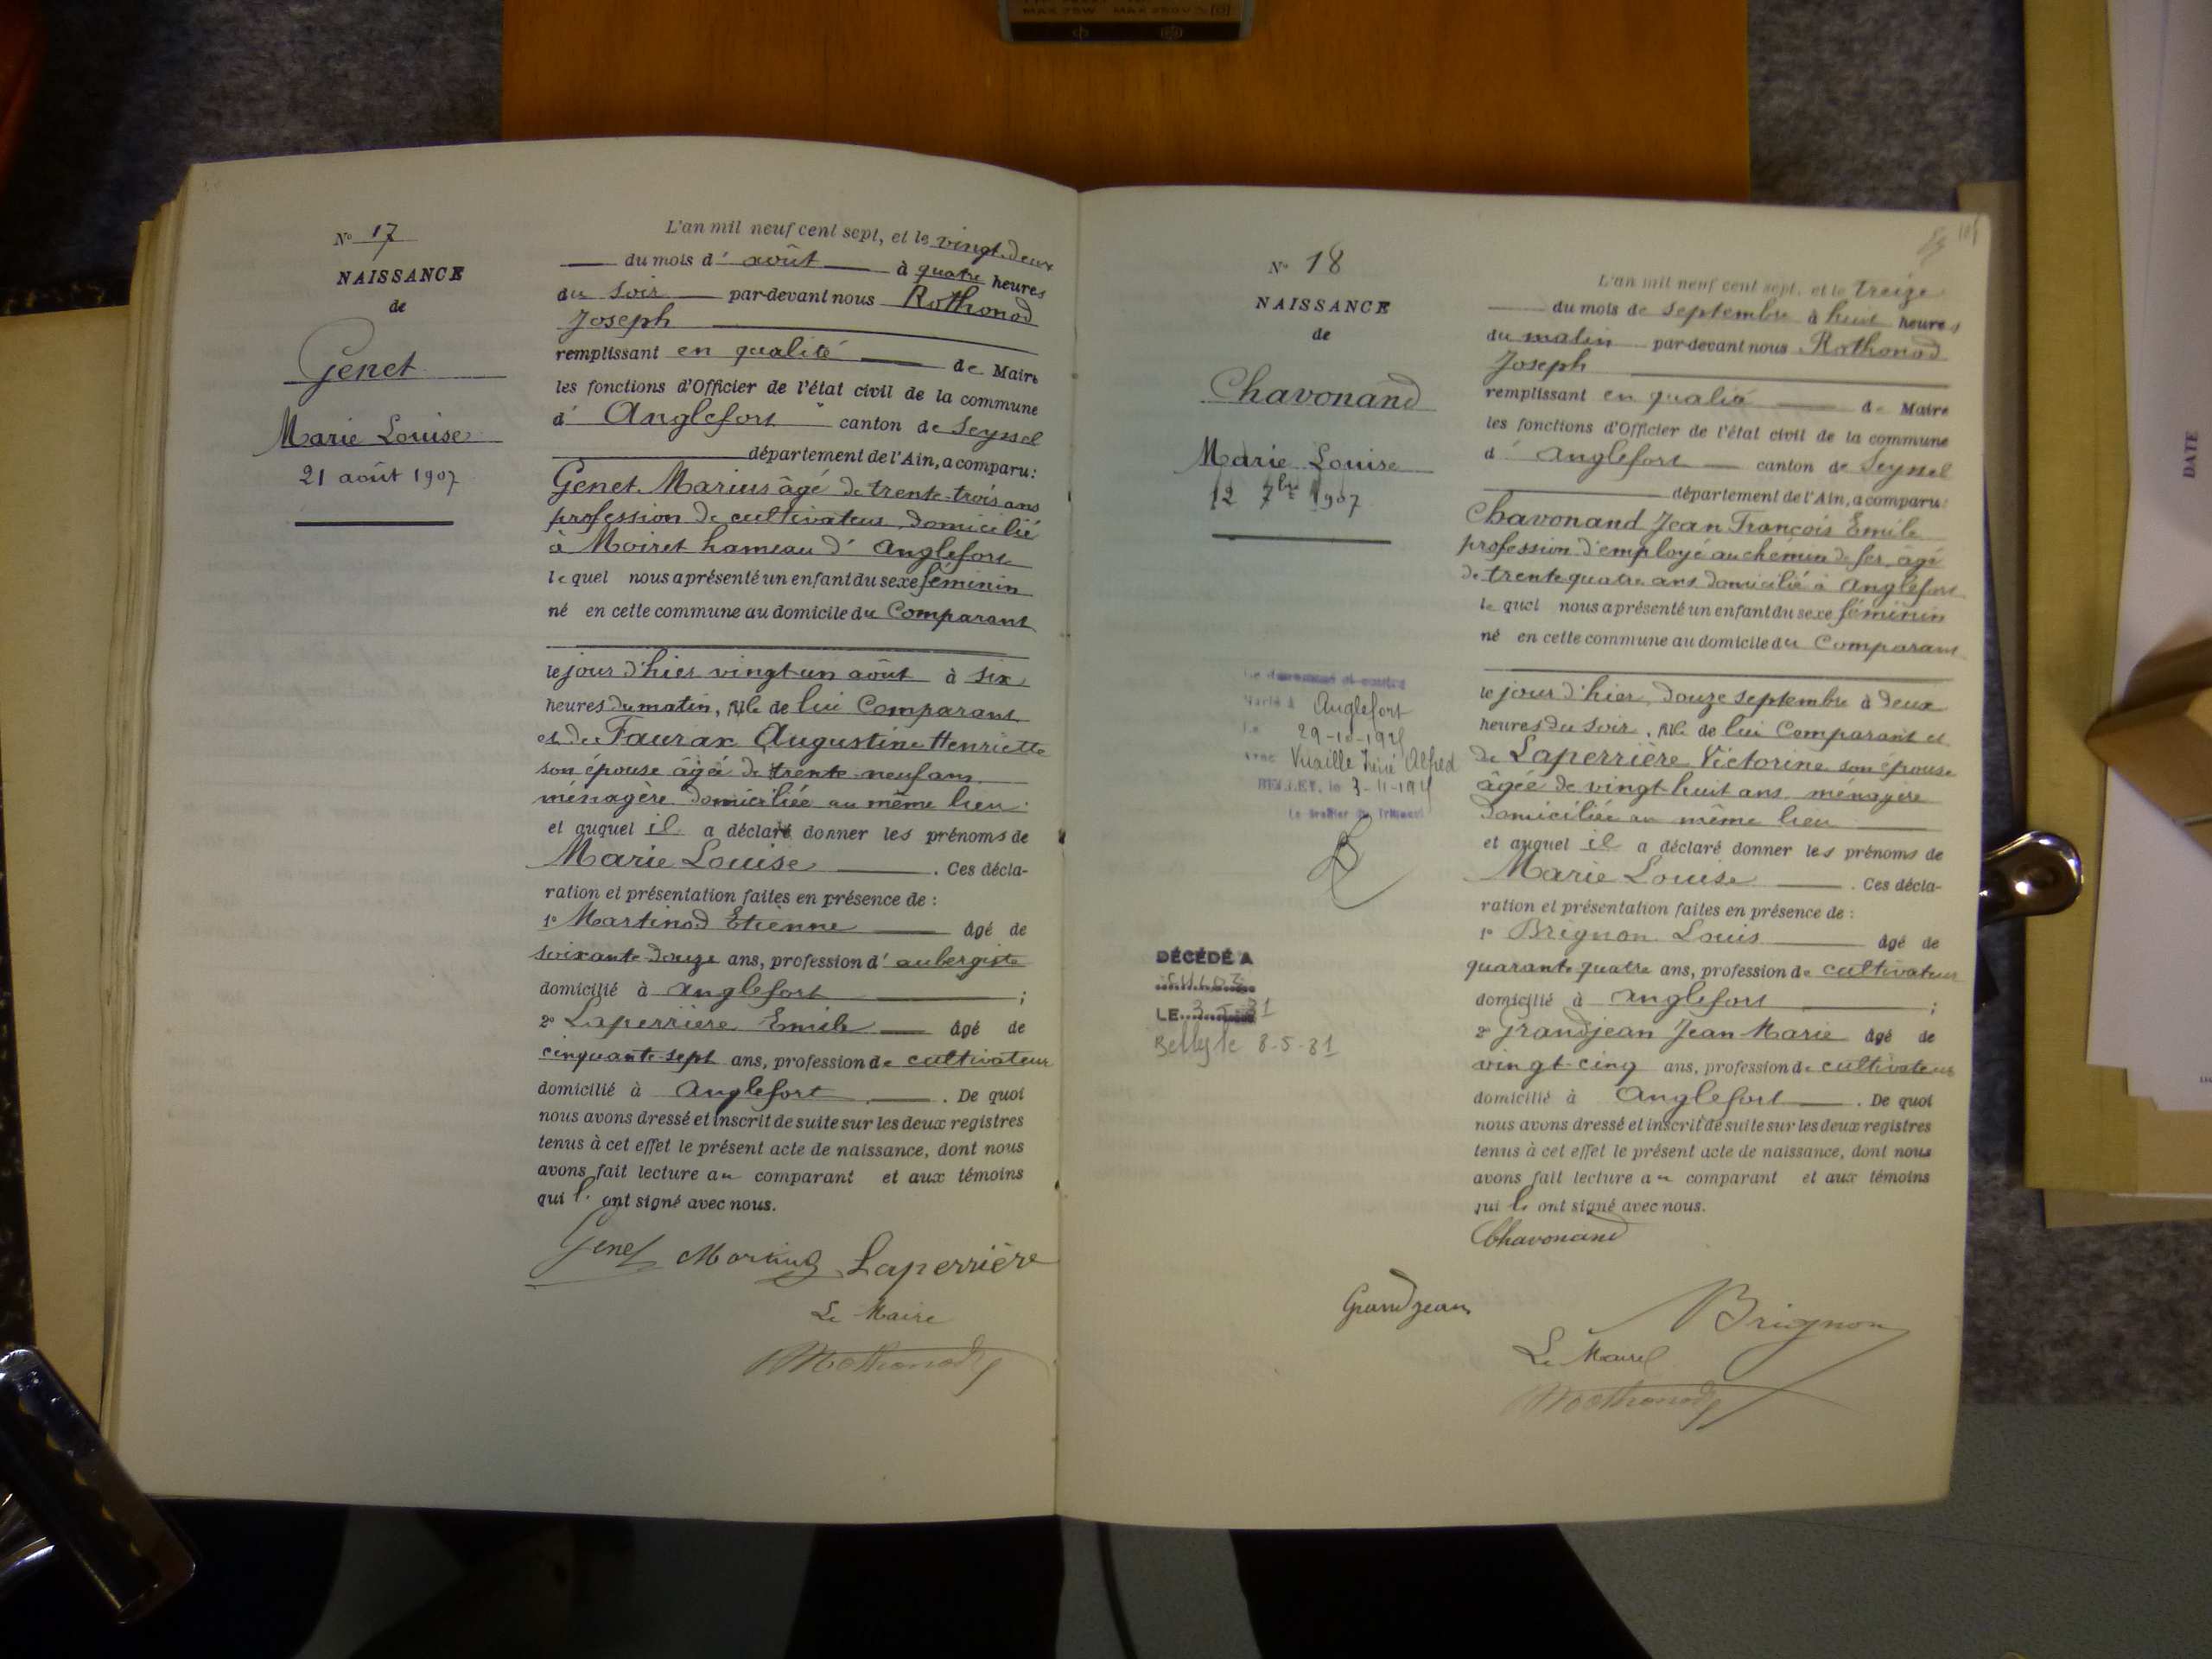 MAX 75W MAX 250V
N° 17
NAISSANCE
de
Genet
Marie Louise
21 août 1907
L'an mil neuf cent sept, et le vingt-deux
du mois d' août à quatre heures
du soir par-devant nous Rothonod
Joseph
remplissant en qualité de Maire
les fonctions d'Officier de l'état civil de la commune
d' Anglefort canton de Seyssel
département de l'Ain, a comparu:
Genet Marius âgé de trente-trois ans
profession de cultivateur domicilié
à Moiret hameau d' Anglefort
lequel nous a présenté un enfant du sexe féminin
né en cette commune au domicile du Comparant
le jour d'hier vingt-un août à six
heures du matin, fille de lui Comparant
et de Faurax Augustine Henriette
son épouse âgée de trente-neuf ans
ménagère domiciliée au même lieu
et auquel il a déclaré donner les prénoms de
Marie Louise . Ces décla-
ration et présentation faites en présence de :
1° Martinod Etienne âgé de
soixante-douze ans, profession d' aubergiste
domicilié à Anglefort ;
2° Laperrière Emile âgé de
cinquante-sept ans, profession de cultivateur
domicilié à Anglefort . De quoi
nous avons dressé et inscrit de suite sur les deux registres
tenus à cet effet le présent acte de naissance, dont nous
avons fait lecture au comparant et aux témoins
qui l' ont signé avec nous.
Genet Martinod Laperrière
Le Maire
Rothonod
N° 18
NAISSANCE
de
Chavonand
Marie Louise
12 7bre 1907
Marié à Anglefort
Le
avec Alfred
BELLEY, le
Le Greffier du Tribunal
DÉCÉDÉ A
LE
8-5-81
L'an mil neuf cent sept, et le treize
du mois de septembre à huit heures
du matin par-devant nous Rothonod
Joseph
remplissant en qualité de Maire
les fonctions d'Officier de l'état civil de la commune
d' Anglefort canton de Seyssel
département de l'Ain, a comparu:
Chavonand Jean François Emile
profession d'employé au chemin de fer âgé
de trente quatre ans domicilié à Anglefort
lequel nous a présenté un enfant du sexe féminin
né en cette commune au domicile du Comparant
le jour d'hier douze septembre à deux
heures du soir, fille de lui Comparant et
de Laperrière Victorine son épouse
âgée de vingt-huit ans ménagère
domiciliée au même lieu
et auquel il a déclaré donner les prénoms de
Marie Louise . Ces décla-
ration et présentation faites en présence de :
1° Brignon Louis âgé de
quarante quatre ans, profession de cultivateur
domicilié à Anglefort ;
2° Grandjean Jean Marie âgé de
vingt-cinq ans, profession de cultivateur
domicilié à Anglefort . De quoi
nous avons dressé et inscrit de suite sur les deux registres
tenus à cet effet le présent acte de naissance, dont nous
avons fait lecture au comparant et aux témoins
qui l' ont signé avec nous.
Chavonand
Grandjean Brignon
Le Maire
Rothonod
DATE